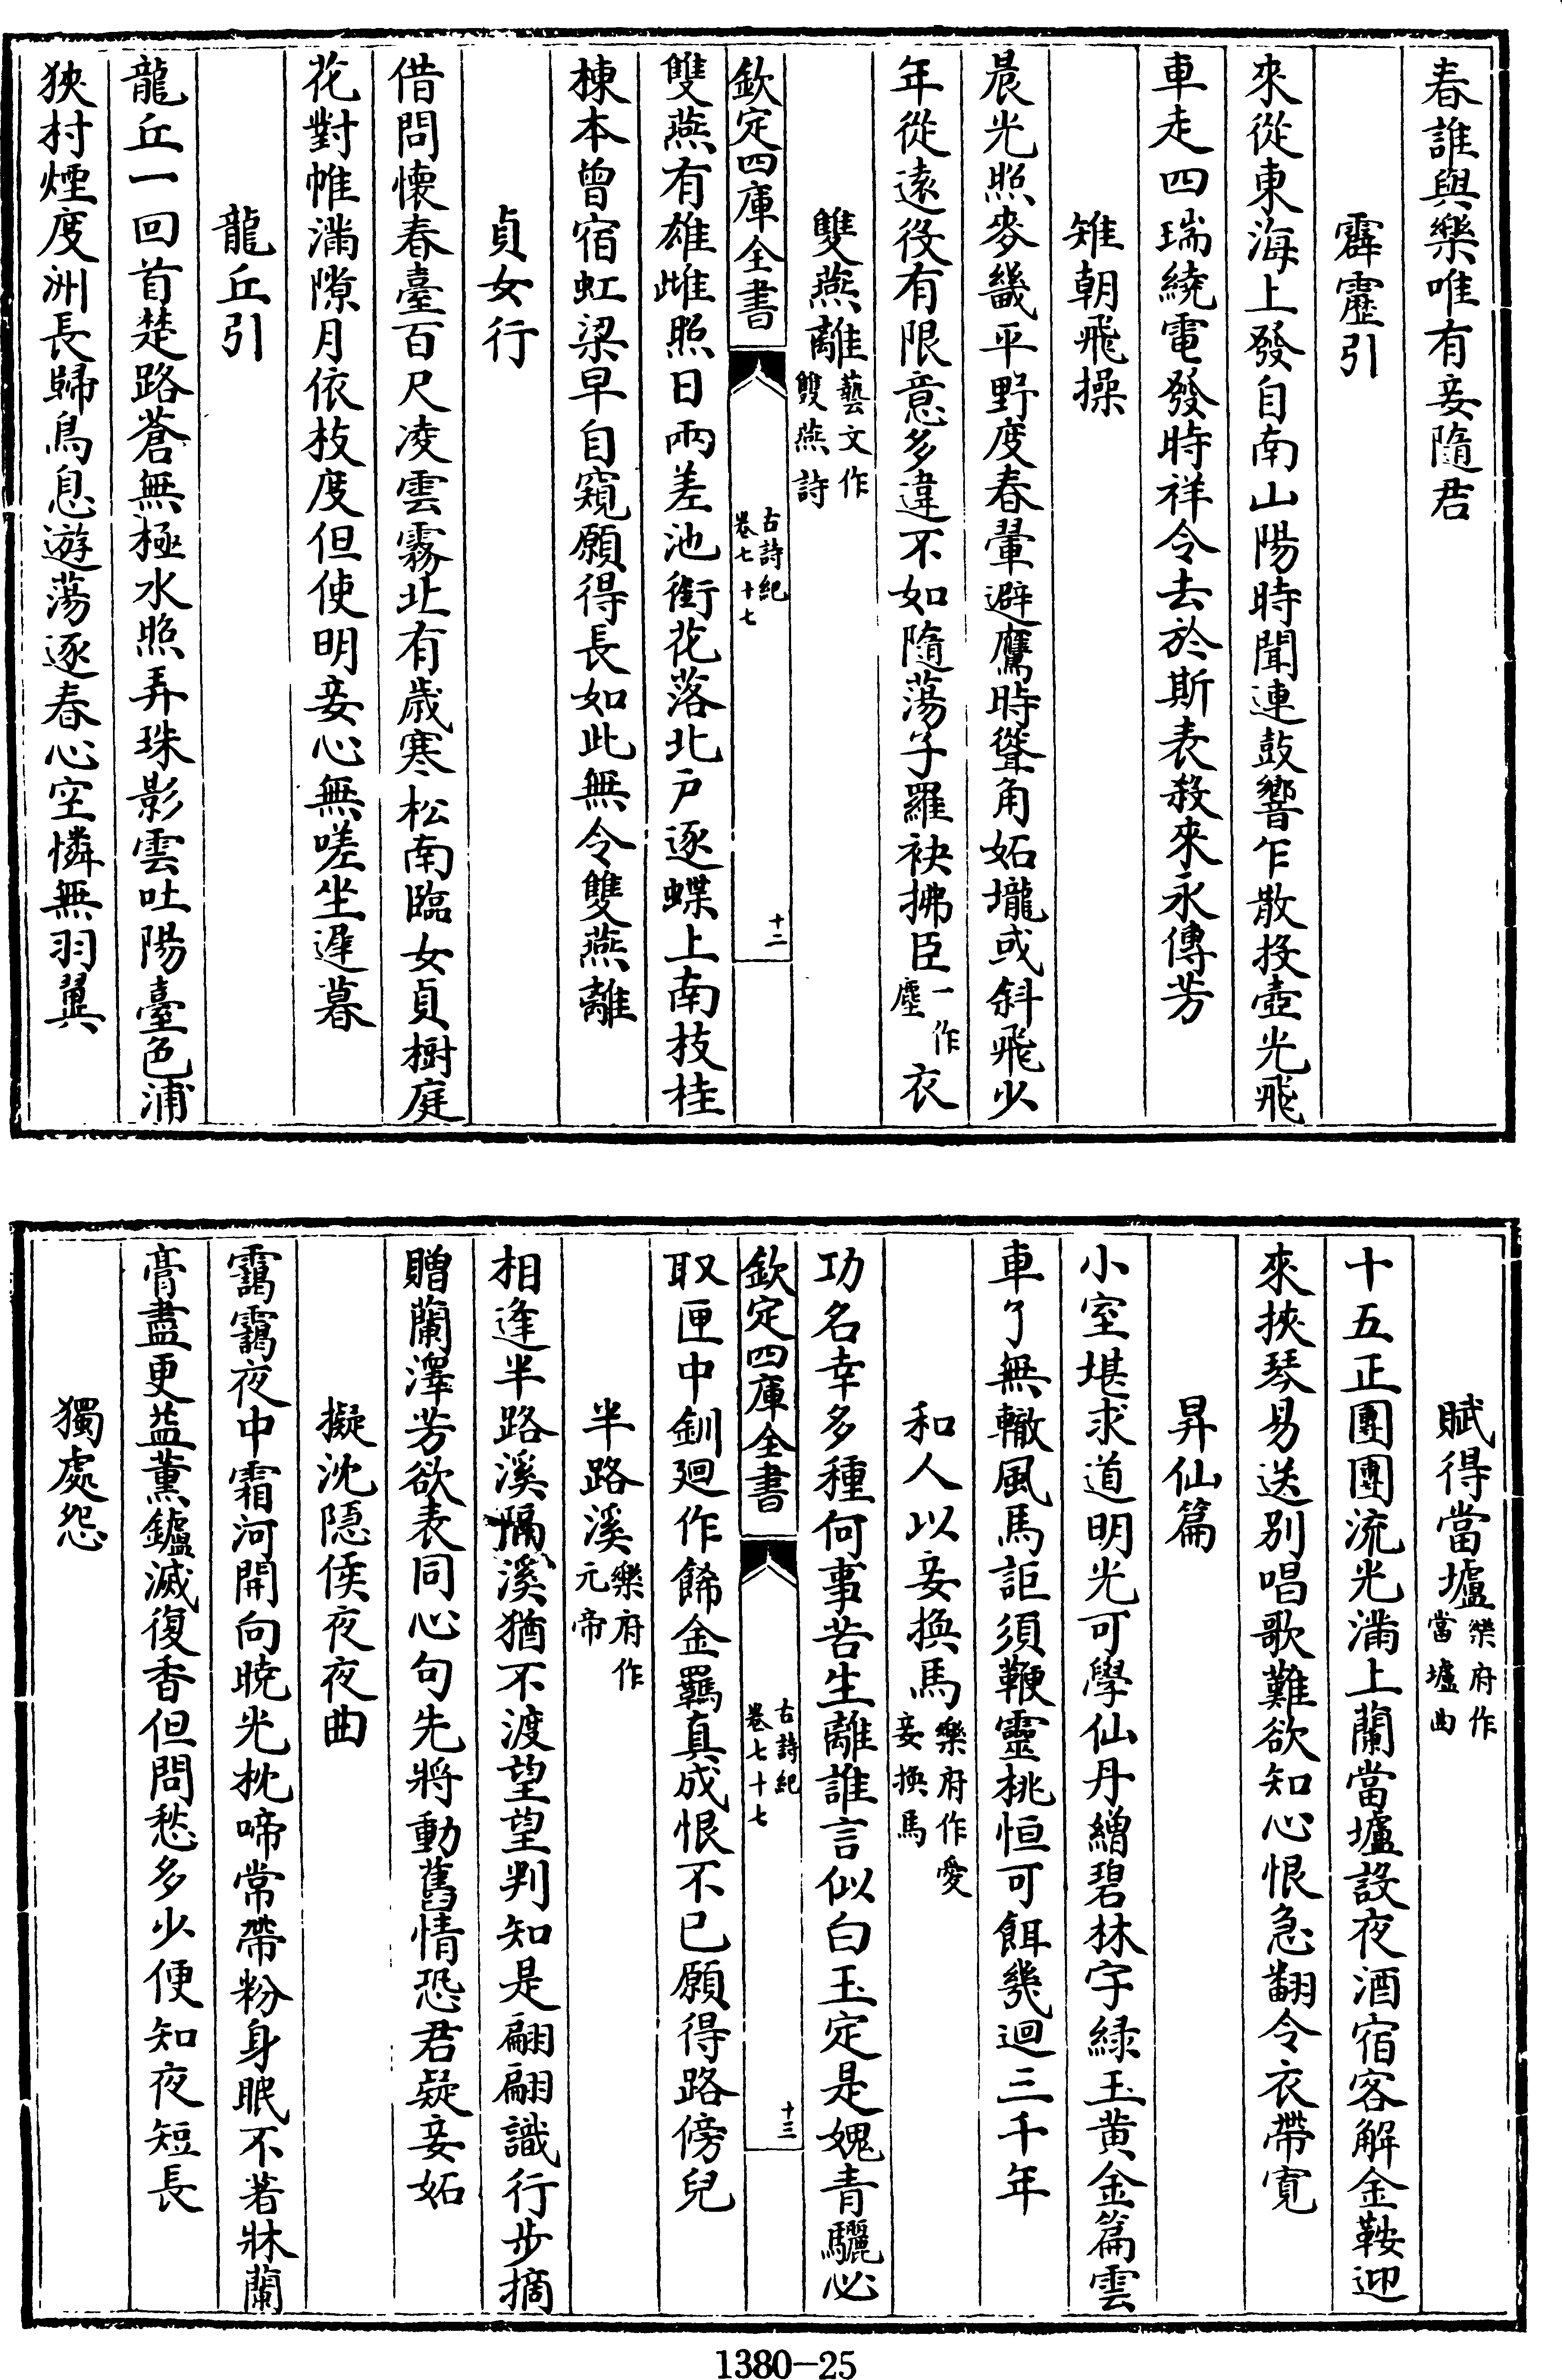 春誰與樂唯有妾隨君
霹靂引
來從東海上發自南山陽時聞連鼓響乍散投壺光飛
車走四瑞繞電發時祥令去於斯表殺來永傳芳
雉朝飛操
晨光照麥畿平野度春翬避鷹時聳角妬壠或斜飛少
年從遠役有限意多違不如隨蕩子羅袂拂臣一作塵衣
雙燕離藝文作雙燕詩
欽定四庫全書
古詩紀
卷七十七
十二
雙燕有雄雌照日兩差池銜花落北户逐蝶上南枝桂
棟本曾宿虹梁早自窺願得長如此無令雙燕離
貞女行
借問懷春臺百尺凌雲霧北有歲寒松南臨女貞樹庭
花對帷滿隙月依枝度但使明妾心無嗟坐遲暮
龍丘引
龍丘一回首楚路蒼無極水照弄珠影雲吐陽臺色浦
狹村煙度洲長歸鳥息遊蕩逐春心空憐無羽翼
賦得當壚樂府作當壚曲
十五正團團流光滿上蘭當壚設夜酒宿客解金鞍迎
來挾琴易送别唱歌難欲知心恨急翻令衣帶寛
昇仙篇
小室堪求道明光可學仙丹繒碧林宇緑玉黄金篇雲
車了無轍風馬詎須鞭靈桃恒可餌幾迴三千年
和人以妾換馬樂府作愛妾換馬
功名幸多種何事苦生離誰言似白玉定是媿青驪必
欽定四庫全書
古詩紀
卷七十七
十三
取匣中釧廻作飾金羈真成恨不已願得路傍兒
半路溪樂府作元帝
相逢半路溪隔溪猶不渡望望判知是翩翩識行步摘
贈蘭澤芳欲表同心句先將動舊情恐君疑妾妬
擬沈隱侯夜夜曲
靄靄夜中霜河開向曉光枕啼常帶粉身眠不著牀蘭
膏盡更益薰鑪滅復香但問愁多少便知夜短長
獨處怨
1380—25